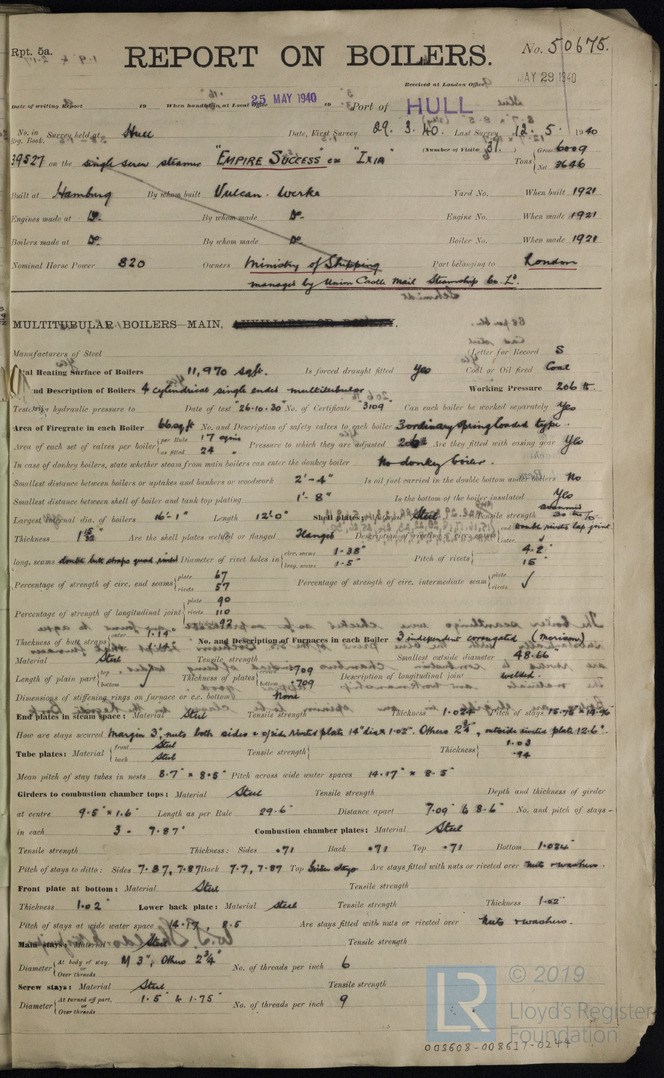 Rpt. 5a.
REPORT ON BOILERS.
No. 50675.
Received at London Office
MAY 29 1940
Date of writing Report 19 When handed in at Local Office 25 MAY 1940 19 Port of HULL
No. in Reg. Book. Survey held at Hull Date, First Survey 29.3.40. Last Survey 12.5.1940
(Number of Visits 31.) Gross 6009
39527 on the single screw steamer "EMPIRE SUCCESS" ex "IXIA" Tons Net 3646
Built at Hamburg By whom built Vulcan-Werke Yard No. When built 1921
Engines made at Do. By whom made Do. Engine No. When made 1921
Boilers made at Do. By whom made Do. Boiler No. When made 1921
Nominal Horse Power 820 Owners Ministry of Shipping Port belonging to London
managed by Union Castle Mail Steamship Co. Ld.
MULTITUBULAR BOILERS—MAIN, AUXILIARY, OR DONKEY.
Manufacturers of Steel Letter for Record S
Total Heating Surface of Boilers 11,970 sq.ft. Is forced draught fitted Yes Coal or Oil fired Coal
and Description of Boilers 4 cylindrical single ended multitubular Working Pressure 206 lb.
Tested by hydraulic pressure to Date of test 26.10.30 No. of Certificate 3109 Can each boiler be worked separately Yes
Area of Firegrate in each Boiler 66 sq ft No. and Description of safety valves to each boiler 3 ordinary spring loaded type.
Area of each set of valves per boiler per Rule 17 as fitted 24 Pressure to which they are adjusted 206 Are they fitted with easing gear Yes
In case of donkey boilers, state whether steam from main boilers can enter the donkey boiler No donkey boiler.
Smallest distance between boilers or uptakes and bunkers or woodwork 2'-4" Is oil fuel carried in the double bottom under boilers No
Smallest distance between shell of boiler and tank top plating 1'-8" Is the bottom of the boiler insulated Yes
Largest internal dia. of boilers 16'-1" Length 12'-0" Shell plates: Material Steel Tensile strength assumed
Thickness 1 15/32 Are the shell plates welded or flanged Flanged Description of riveting: double rivets lap joint
long. seams double butt straps Diameter of rivet holes in circ. seams 1.38" long. seams 1.5" Pitch of rivets 4.2 15
Percentage of strength of circ. end seams plate 67 rivets 57 Percentage of strength of circ. intermediate seam plate rivets ✓
Percentage of strength of longitudinal joint plate 90 rivets 110 combined 92
Thickness of butt straps outer 1.14 No. and Description of Furnaces in each Boiler 3 independent corrugated (Morison)
Material Steel Tensile strength Smallest outside diameter 48.66
Length of plain part top bottom Thickness of plates .709 bottom .709 Description of longitudinal joint welded.
Dimensions of stiffening rings on furnace or c.c. bottom None
End plates in steam space: Material Steel Tensile strength Thickness 1.024 Pitch of stays 15.75 × 14.96
How are stays secured Margin 3", nuts both sides + o/side riveted plate 14" dia × 1.02". Others 2¾", outside riveted plate 12.6".
Tube plates: Material front Steel back Steel Tensile strength Thickness 1.03 .94
Mean pitch of stay tubes in nests 8.7" × 8.5" Pitch across wide water spaces 14.17" × 8.5"
Girders to combustion chamber tops: Material Steel Tensile strength Depth and thickness of girder
at centre 9.5" × 1.6" Length as per Rule 29.6" Distance apart 7.09" & 8.6" No. and pitch of stays
in each 3 - 7.87" Combustion chamber plates: Material Steel
Tensile strength Thickness: Sides .71 Back .71 Top .71 Bottom 1.024"
Pitch of stays to ditto: Sides 7.87, 7.87 Back 7.7, 7.87 Top Girder stays Are stays fitted with nuts or riveted over nuts & washers.
Front plate at bottom: Material Steel Tensile strength
Thickness 1.02" Lower back plate: Material steel Tensile strength Thickness 1.02"
Pitch of stays at wide water space 14.17 8.5 Are stays fitted with nuts or riveted over Nuts & washers.
Main stays: Material Steel Tensile strength
Diameter At body of stay, or Over threads M 3", Others 2¾" No. of threads per inch 6
Screw stays: Material Steel Tensile strength
Diameter At turned off part, or Over threads 1.5" & 1.75" No. of threads per inch 9
© 2019
LR Lloyd's Register
Foundation
008608-008617-0244